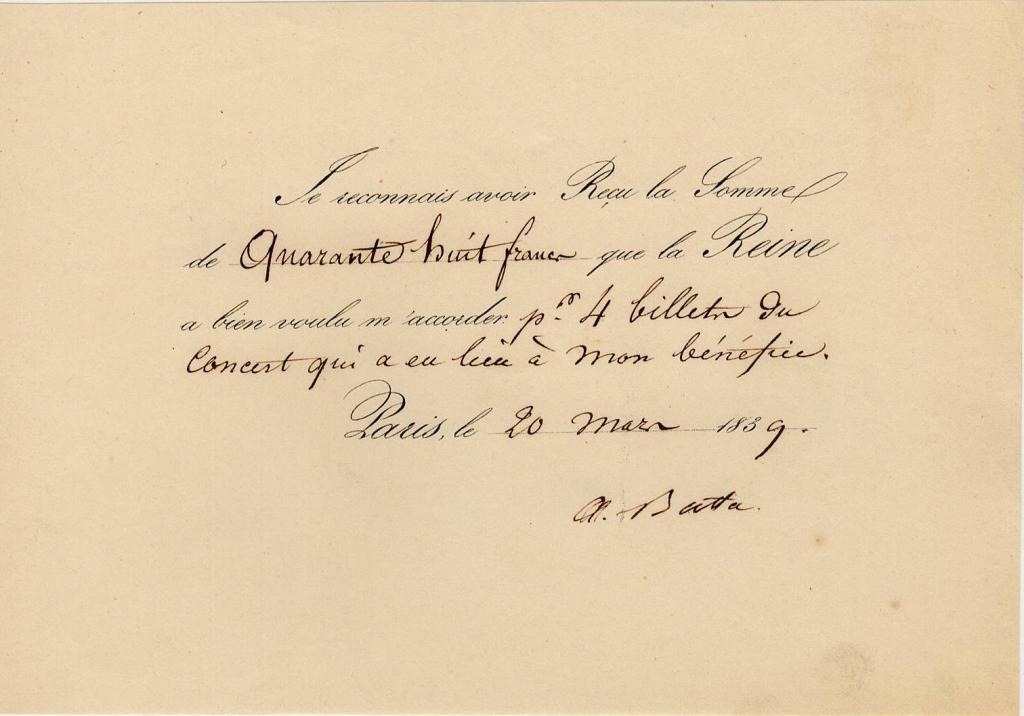 Je reconnais avoir Reçu la Somme
de Quarante huit francs que la Reine
a bien voulu m'accorder pr 4 billets du
Concert qui a eu lieu à mon bénéfice.
Paris, le 20 mars 1839.
A. Batta.